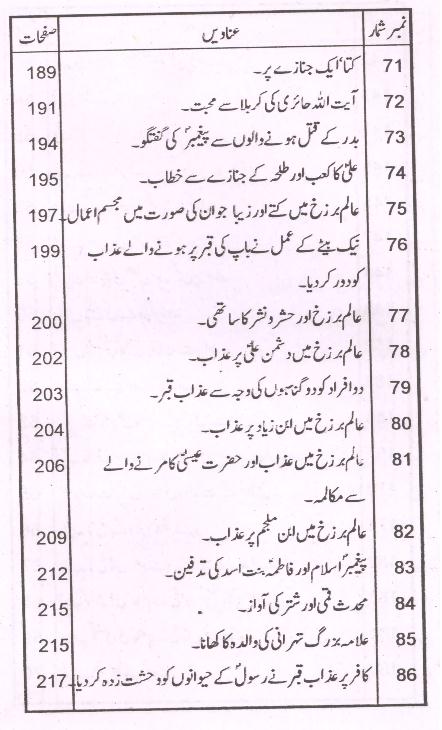 نمبر شمار عناویں صفحات
71 کتا ایک جنازے پر۔ 189
72 آیت اللہ حائری کی کربلا سے محبت۔ 191
73 بدر کے قتل ہونے والوں سے پیغمبرؐ کی گفتگو۔ 194
74 علیؑ کا کعب اور طلحہ کے جنازے سے خطاب۔ 195
75 عالم برزخ میں کتے اور زیبا جوان کی صورت میں مجسم اعمال۔ 197
76 نیک بیٹے کے عمل نے باپ کی قبر پر ہونے والے عذاب 199
کو دور کر دیا۔
77 عالم برزخ اور حشر و نشر کا ساتھی۔ 200
78 عالم برزخ میں دشمن علیؑ پر عذاب۔ 202
79 دو افراد کو دو گناہوں کی وجہ سے عذاب قبر۔ 203
80 عالم برزخ میں ابن زیاد پر عذاب۔ 204
81 عالم برزخ میں عذاب اور حضرت عیسیٰؑ کا مرنے والے 206
سے مکالمہ۔
82 عالم برزخ میں ابن ملجم پر عذاب۔ 209
83 پیغمبرؐ اسلام اور فاطمہؑ بنت اسد کی تدفین۔ 212
84 محدث قمی اور شتر کی آواز۔ 215
85 علامہ بزرگ تہرانی کی والدہ کا کھانا۔ 215
86 کافر پر عذاب قبر نے رسولؐ کے حیوانوں کو وحشت زدہ کر دیا۔ 217